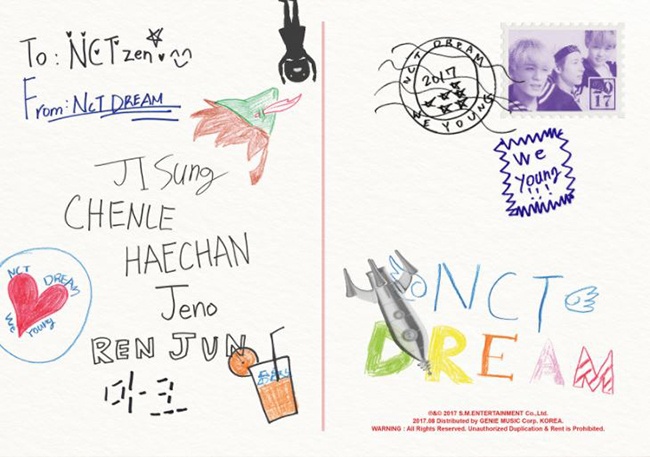 To: NCTzen
From: NCT DREAM
JISung
CHENLE
HAECHAN
Jeno
REN JUN
마크
NCT DREAM
We Young
NCT DREAM
2017
WE YOUNG
2017
We
young
!!!
NCT
DREAM
℗&© 2017 S.M.ENTERTAINMENT Co.,Ltd.
2017.08 Distributed by GENIE MUSIC Corp. KOREA.
WARNING : All Rights Reserved. Unauthorized Duplication & Rent is Prohibited.